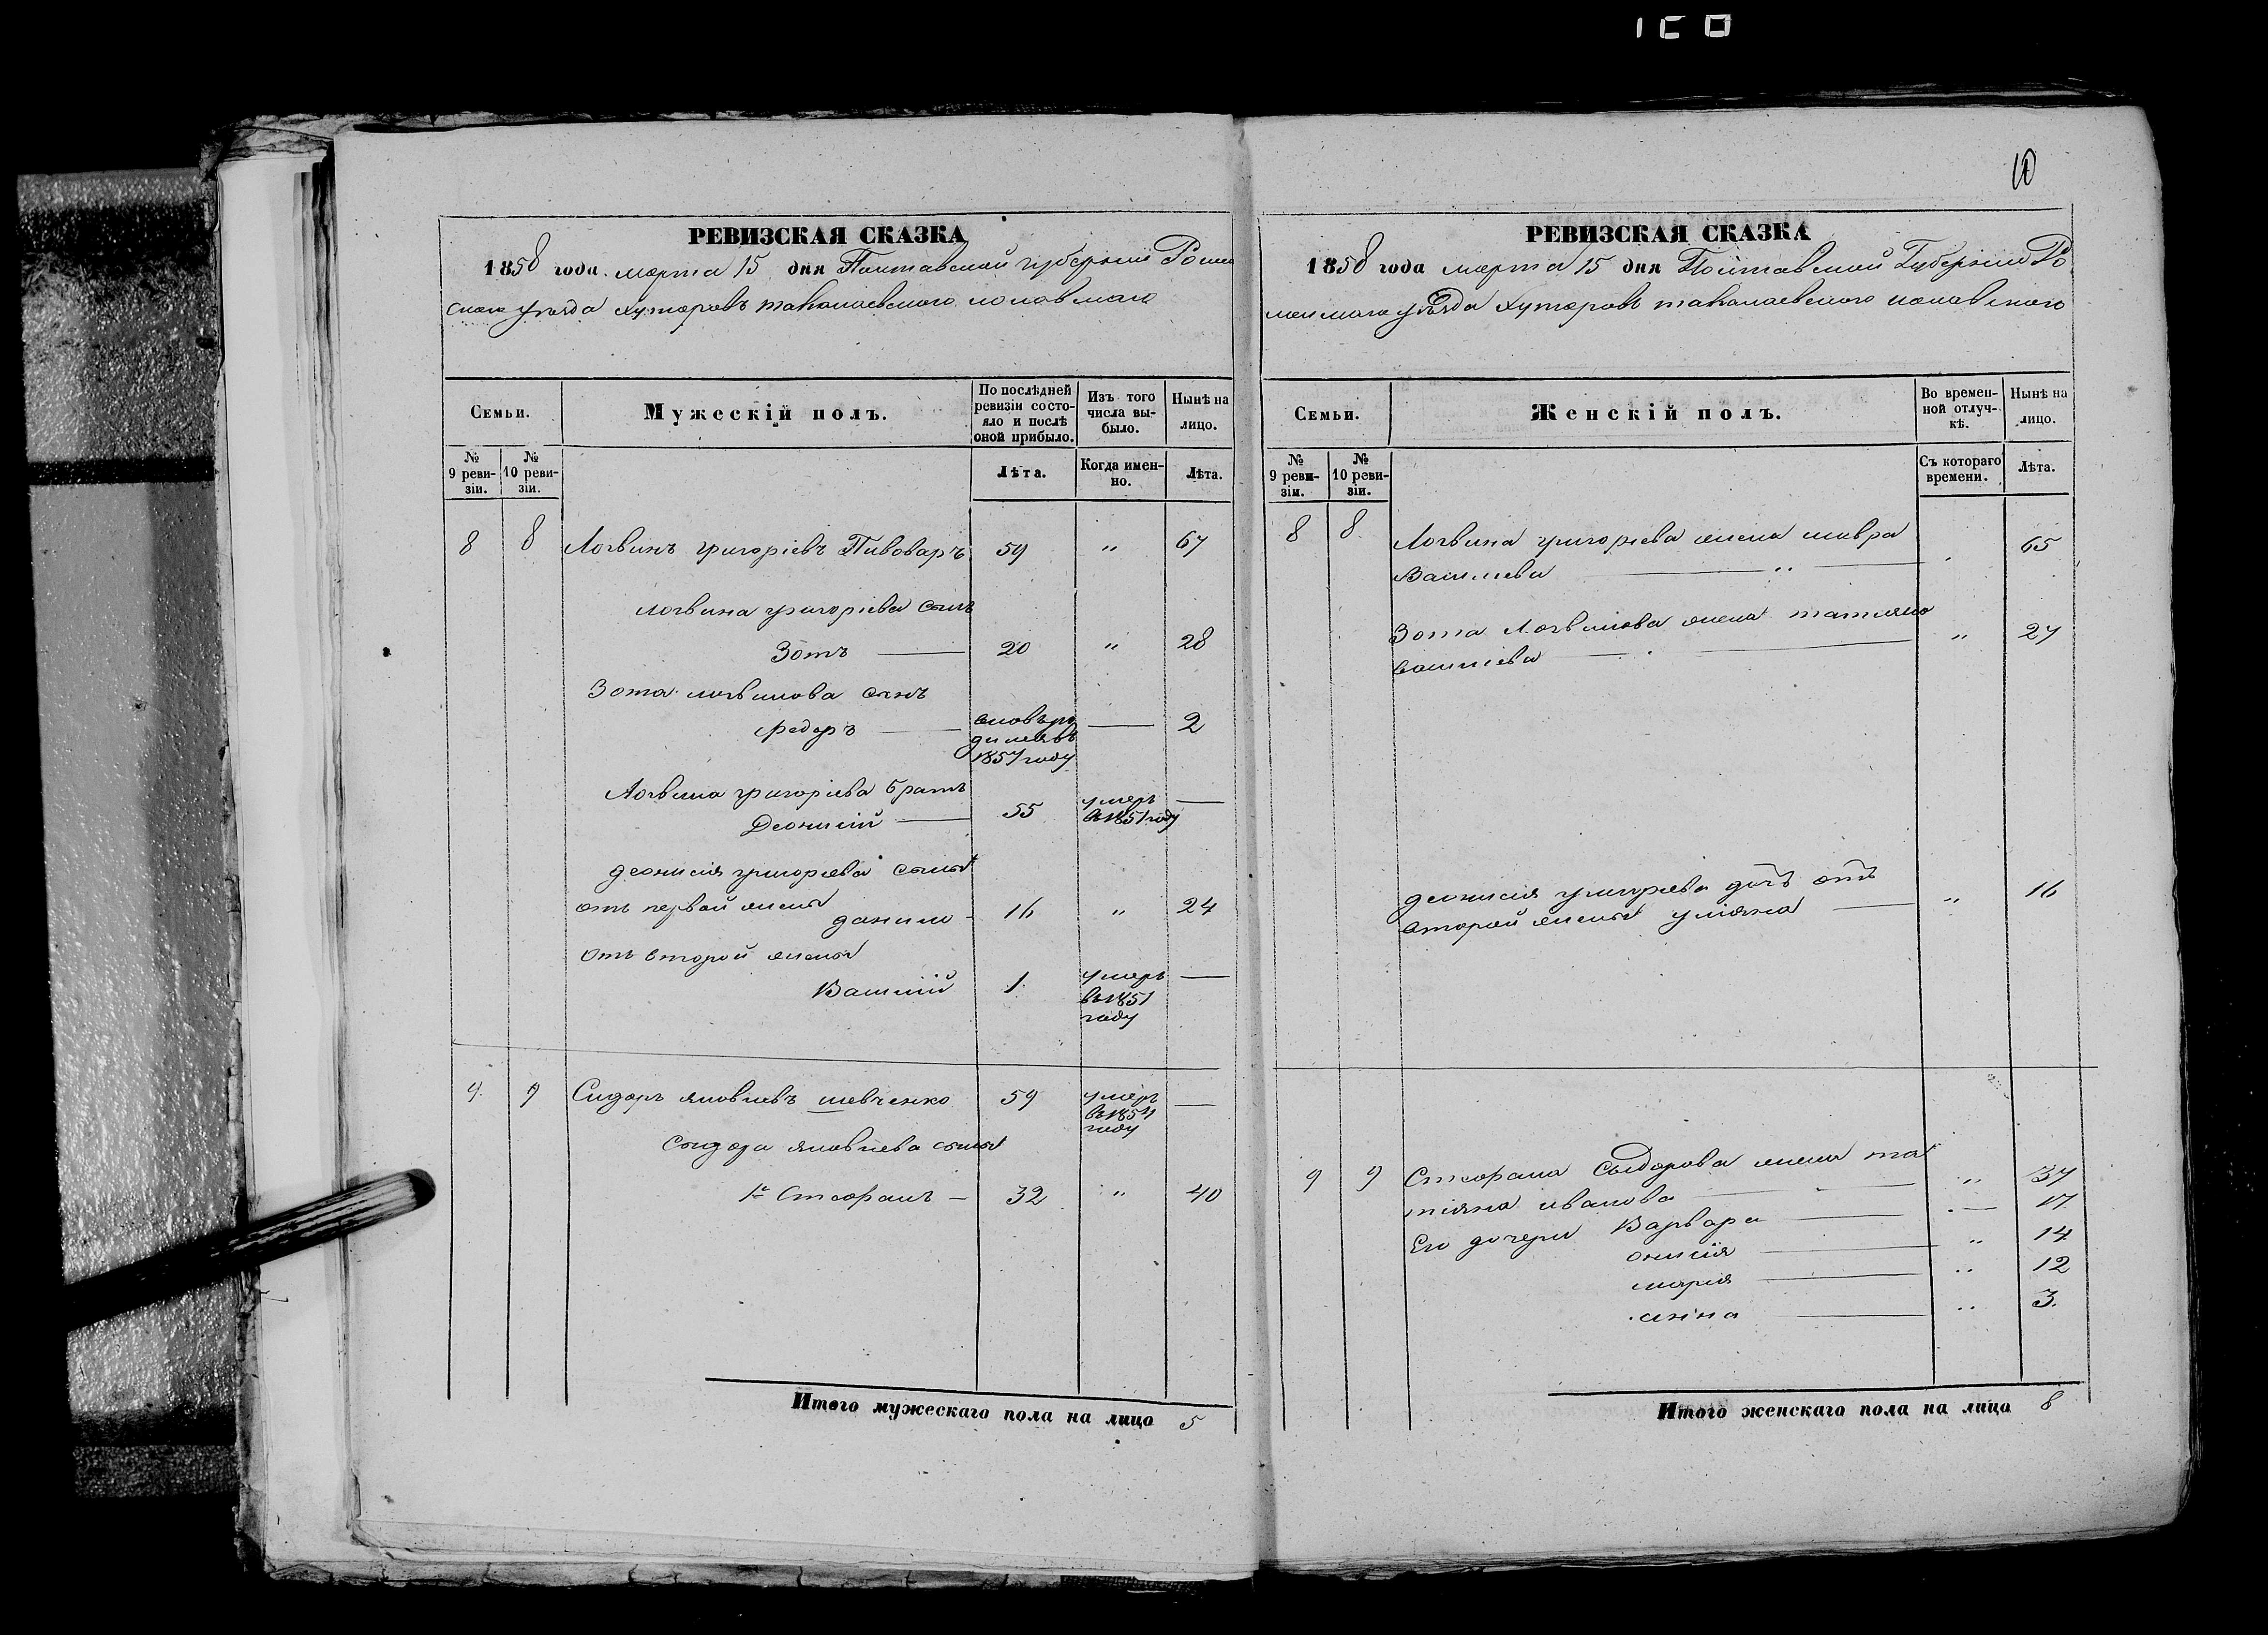 10
РЕВИЗСКАЯ СКАЗКА
1858 года марта 15 дня Полтавской губерніи Ромен
скаго уезда хуторовъ
Семьи.
Мужескій полъ.
По послѣдней ревизіи состояло и послѣ оной прибыло.
Изъ того числа выбыло.
Нынѣ на лицо.
№ 9 ревизіи.
№ 10 ревизіи.
Лѣта.
Когда именно.
Лѣта.
8 8 Логвинъ григоріевъ Пивоваръ 59 " 67
логвина григоріева сынъ
Зотъ 20 " 28
Зота логвинова сынъ
федоръ 1857 году 2
Логвина григоріева братъ
Деонисій 55 умеръ в 1851 году
деонисія григоріева сыны
отъ первой жены
данило 16 " 24
отъ второй жены
Василій 1 умеръ въ 1851 году
9 9 Сидоръ яковлевъ шевченко 59 умеръ году
сыдора яковлева сыны
1й Стефанъ 32 " 40
Итого мужескаго пола на лицо 5
РЕВИЗСКАЯ СКАЗКА
1858 года марта 15 дня Полтавской Губерніи Ро
менскаго уезда хуторовъ
Семьи.
Женскій полъ.
Во временной отлучкѣ.
Нынѣ на лицо.
№ 9 ревизіи.
№ 10 ревизіи.
Съ котораго времени.
Лѣта.
8 8 Логвина григорьева жена мавра
Василиева " 65
Зота Логвинова жена татияна
василиева " 27
деонисія григорьева дочь отъ
второй жены улияна " 16
9 9 Стефана Сыдорова жена та
тияна иванова " 37
Его дочери Варвара 17
онисія " 14
марія " 12
анна " 3
Итого женскаго пола на лицо 8